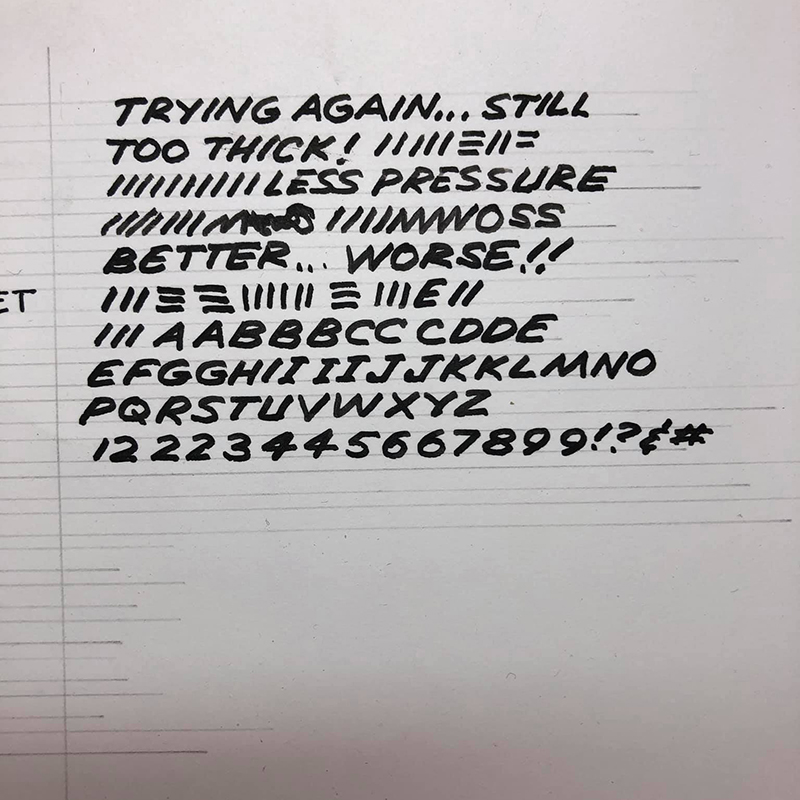 TRYING AGAIN... STILL
TOO THICK! ///// ≡ // =
/////////// LESS PRESSURE
//// MWOSS
BETTER... WORSE!!
ET
/// ≡ ≡ ////// ≡ /// E //
/// A A B B B C C C D D E
E F G G H I I I I J J K K L M N O
P Q R S T U V W X Y Z
1 2 2 2 3 4 4 5 6 6 7 8 9 9 ! ? & #